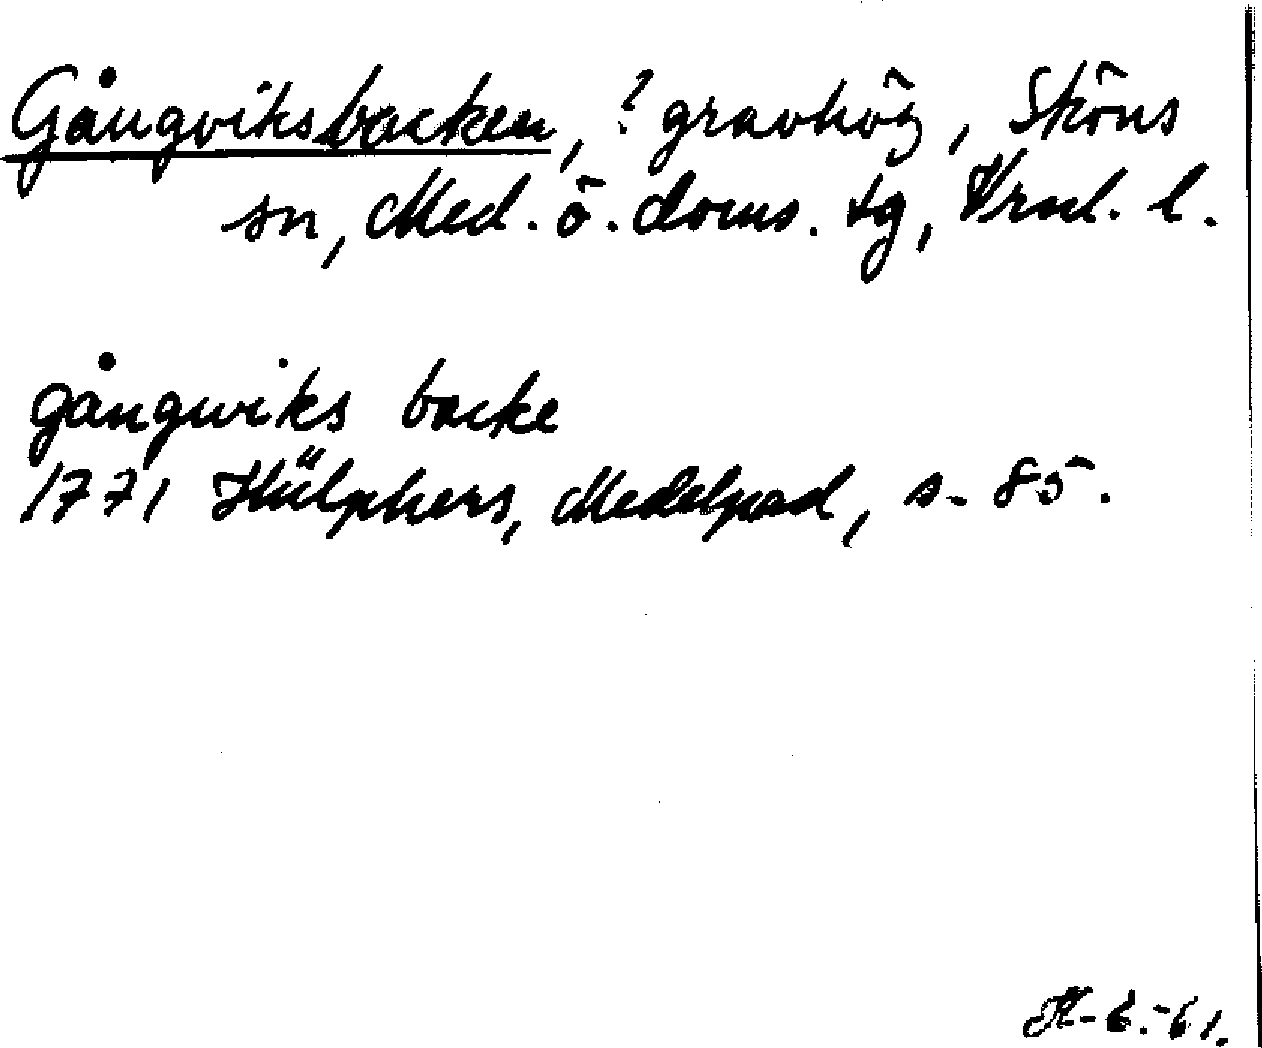 Gångviksbacken, ? gravhög, Sköns
sn, Med. ö. doms. tg, Vrnl. l.
gångwiks backe
1771 Hülphers, Medelpad, s. 85.